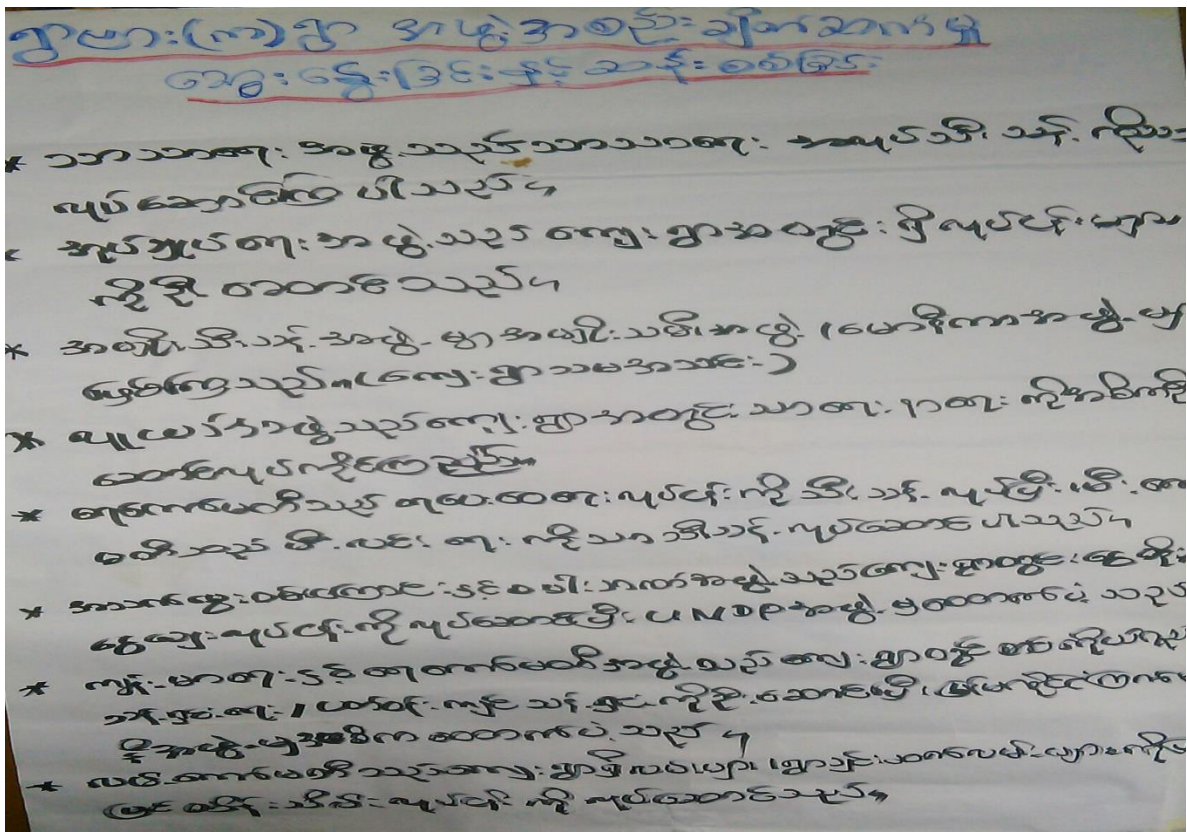 ရွာများ(ကာ)ရွာ အဖွဲ့အစည်းချိတ်ဆက်မှု
ဆွေးနွေးခြင်းနှင့် ဆန်းစစ်ခြင်း
* ဘာသာရေး အဖွဲ့သည် ဘာသာရေး အလုပ်သီးသန့် ကိုသာ
လုပ်ဆောင်ကြ ပါသည်။
အုပ်ချုပ်ရေးအဖွဲ့သည် ကျေးရွာအတွင်းရှိလုပ်ငန်းများ
ကိုဦး ဆောင်သည်။
* အမျိုးသီးသန့်အဖွဲ့ မှာအမျိုးသမီးအဖွဲ့ (မော်နီကာအဖွဲ့
ဖြစ်ကြသည်။ (ကျေးရွာသမအသင်း)
* လူငယ်အဖွဲ့သည်ကျေးရွာအတွင်း သာရေး၊နာရေး ကိုအဓိက
ဆောင်လုပ်ကိုင်ကြသည်။
* ရေကော်မတီသည် ရေပေးဝေရေးလုပ်ငန်းကို သီးသန့် လုပ်ပြီး၊ မီး
မတီသည် မီးလင်း ရေး ကိုသာသီးသန့် လုပ်ဆောင်ပါသည်။
* အသက်မွေးဝမ်းကျောင်းနှင့်စပါး အဖွဲ့သည်ကျေးရွာတွင်းငွေတိုး
ငွေချေးလုပ်ငန်းကိုလုပ်ဆောင်ပြီး UNDPအဖွဲ့မှထောက်ပံ့ သည်
* ကျန်းမာရေးနှင့် ရေကော်မတီအဖွဲ့သည် ကျေးရွာတွင်
သန့်ရှင်းရေး / ပတ်ဝန်းကျင် သန့်ရှင်းကိုဦးဆောင်ပြီး
အဖွဲ့မှအဓိက ထောက်ပံ့သည်။
* လမ်းကော်မတီသည်ကျေးရွာရှိလမ်းများ၊
ပြင် ထိန်းသိမ်းလုပ်ငန်း ကို လုပ်ဆောင်သည်။